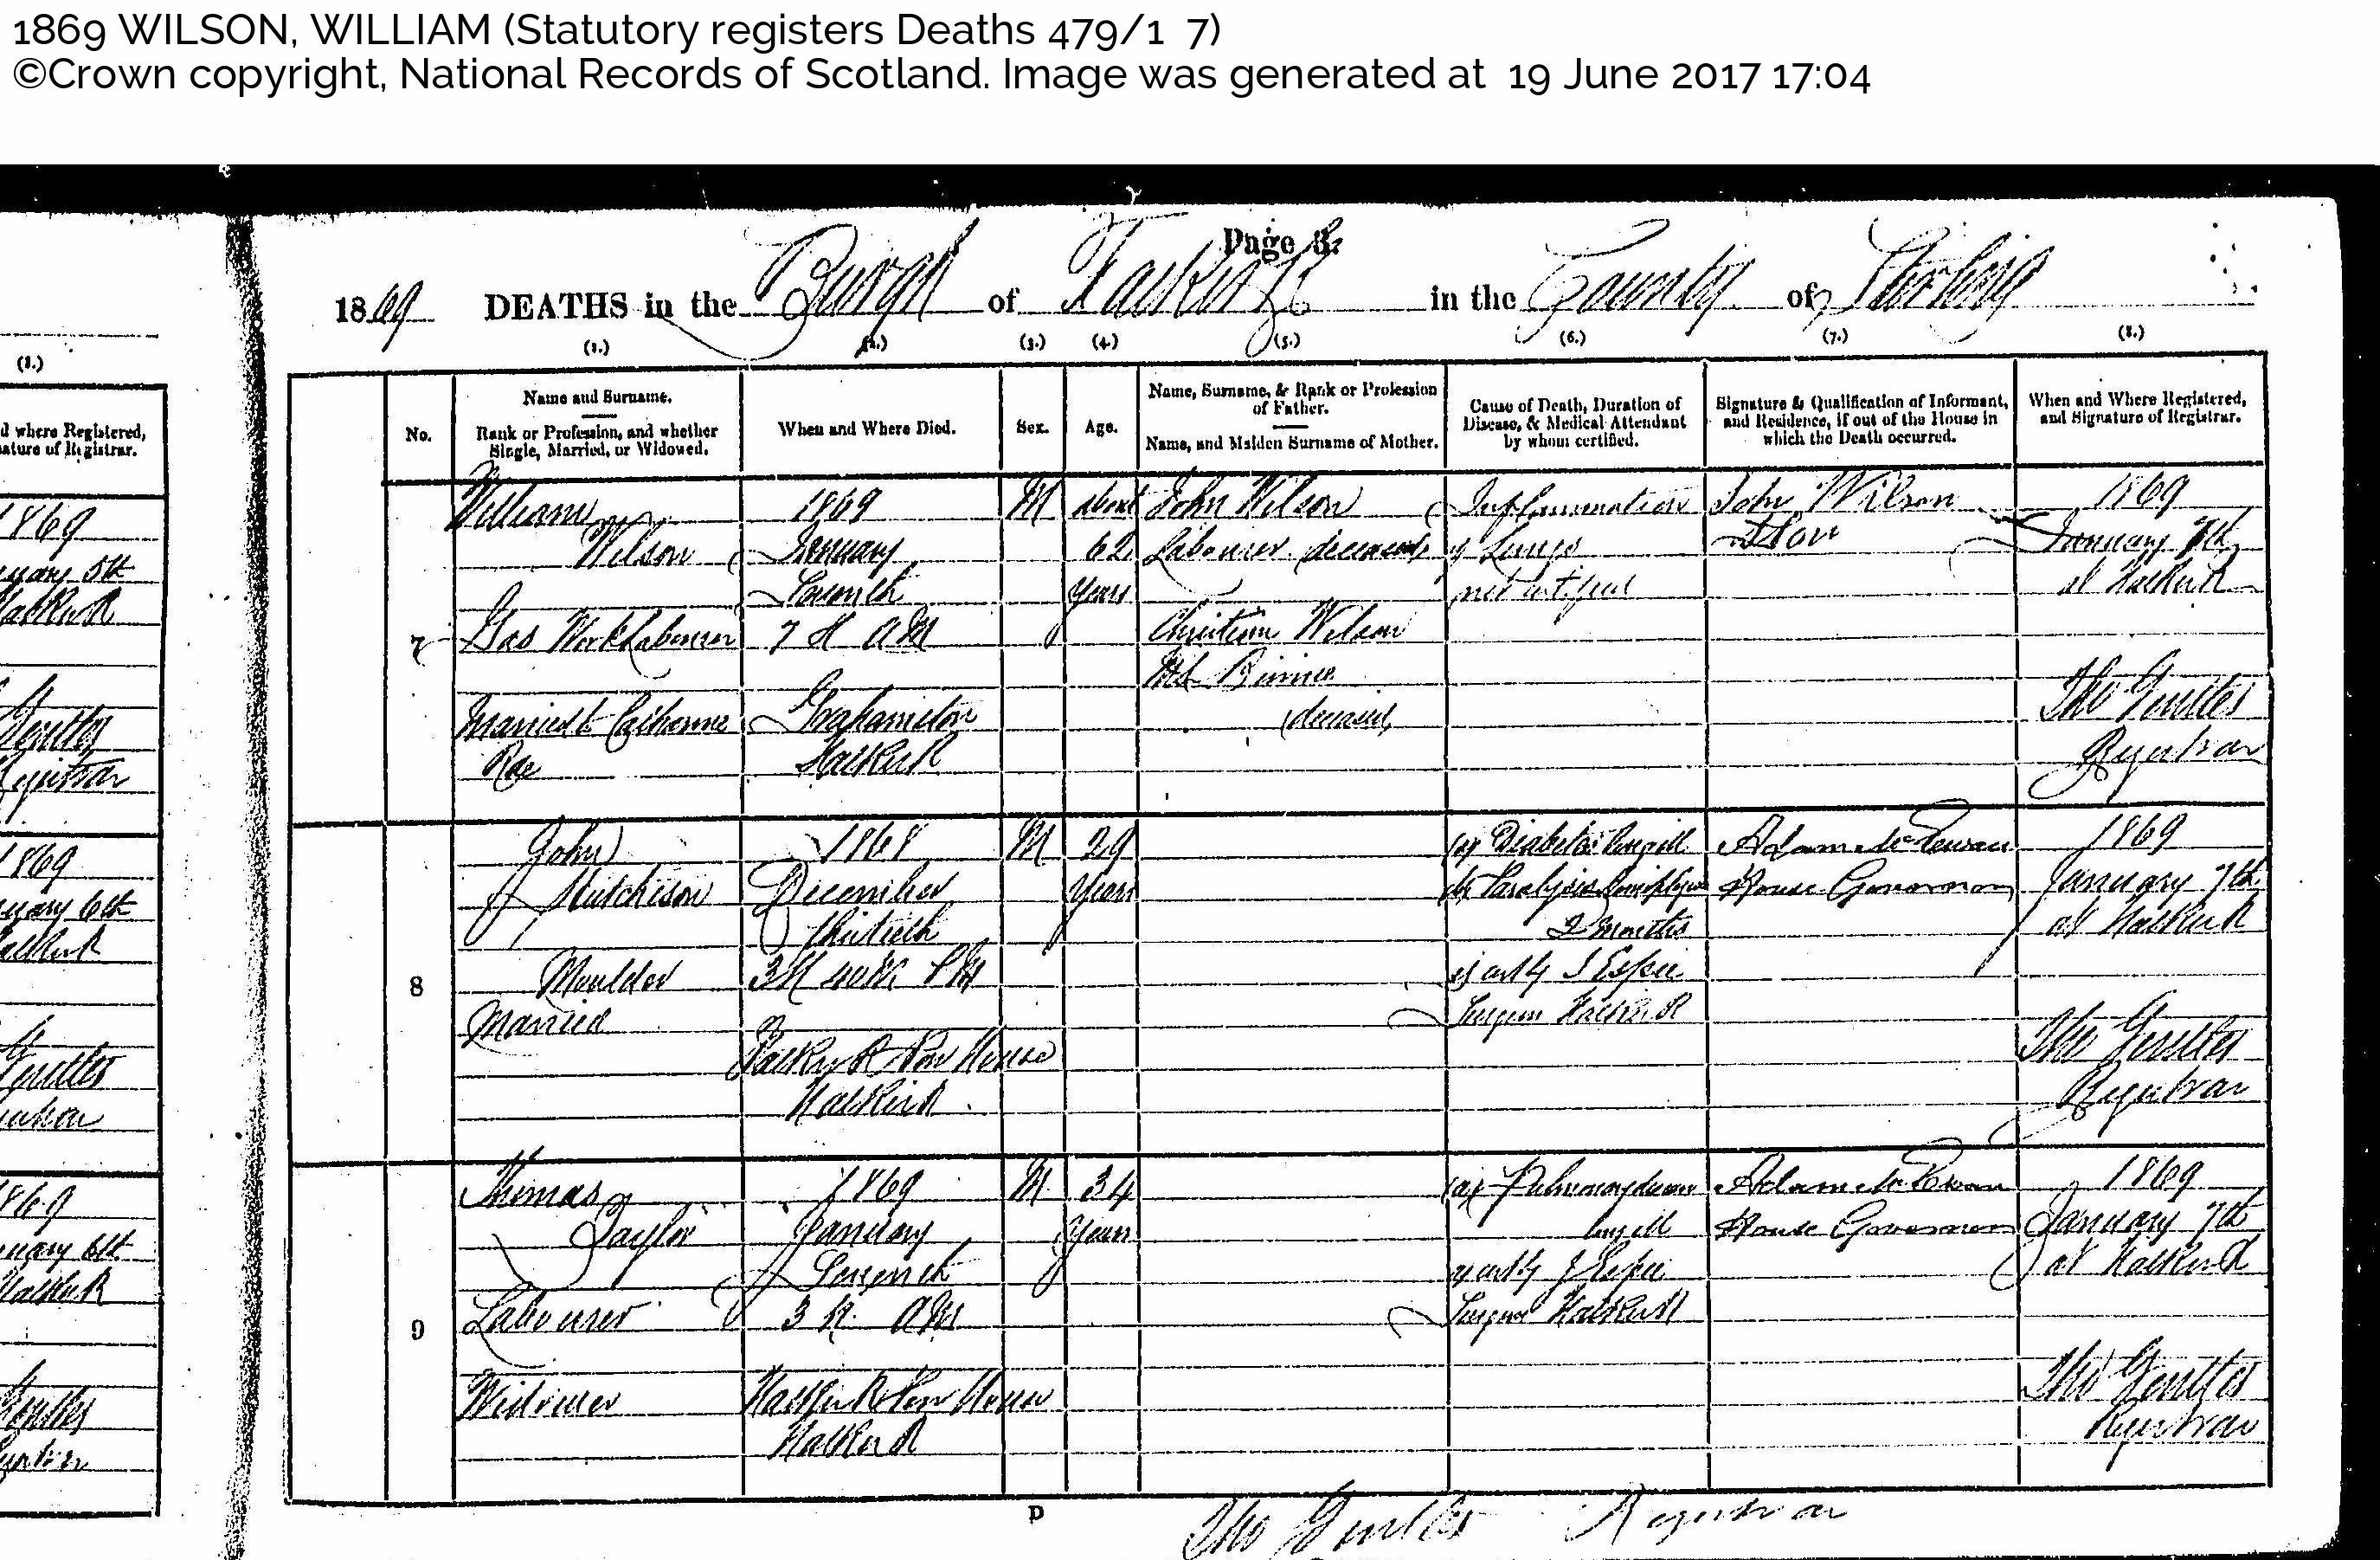 1869 WILSON, WILLIAM (Statutory registers Deaths 479/1 7)
©Crown copyright, National Records of Scotland. Image was generated at 19 June 2017 17:04
Page 3.
1869 DEATHS in the Burgh of Falkirk in the County of Stirling
(1.) (2.) (3.) (4.) (5.) (6.) (7.) (8.)
No.
Name and Surname.
Rank or Profession, and whether
Single, Married, or Widowed.
When and Where Died.
Sex.
Age.
Name, Surname, & Rank or Profession
of Father.
Name, and Maiden Surname of Mother.
Cause of Death, Duration of
Disease, & Medical Attendant
by whom certified.
Signature & Qualification of Informant,
and Residence, if out of the House in
which the Death occurred.
When and Where Registered,
and Signature of Registrar.
7
William
Wilson
Gas Work Labourer
Married to Catherine
Rae
1869
January
Seventh
7 H AM
Grahamston
Falkirk
M
about
62
Years
John Wilson
Labourer deceased
Christian Wilson
MS Binnie
deceased
Inflammation
of Lungs
not certified
John Wilson
Son
1869
January 7th
at Falkirk
Tho Gentles
Registrar
8
John
Hutchison
Moulder
Married
1868
December
thirtieth
3H PM
Falkirk Poor House
Falkirk
M
29
Years
(a) Diabetes
(b) Paralysis
2 months
as cert by J Espie
Surgeon Falkirk
Adam McEwan
House Governor
1869
January 7th
at Falkirk
Tho Gentles
Registrar
9
Thomas
Taylor
Labourer
Widower
1869
January
Seventh
3 H. AM
Falkirk Poor House
Falkirk
M
34
Years
(a) Pulmonary disease
as cert by J Espie
Surgeon Falkirk
Adam McEwan
House Governor
1869
January 7th
at Falkirk
Tho Gentles
Registrar
P
Tho Gentles Registrar